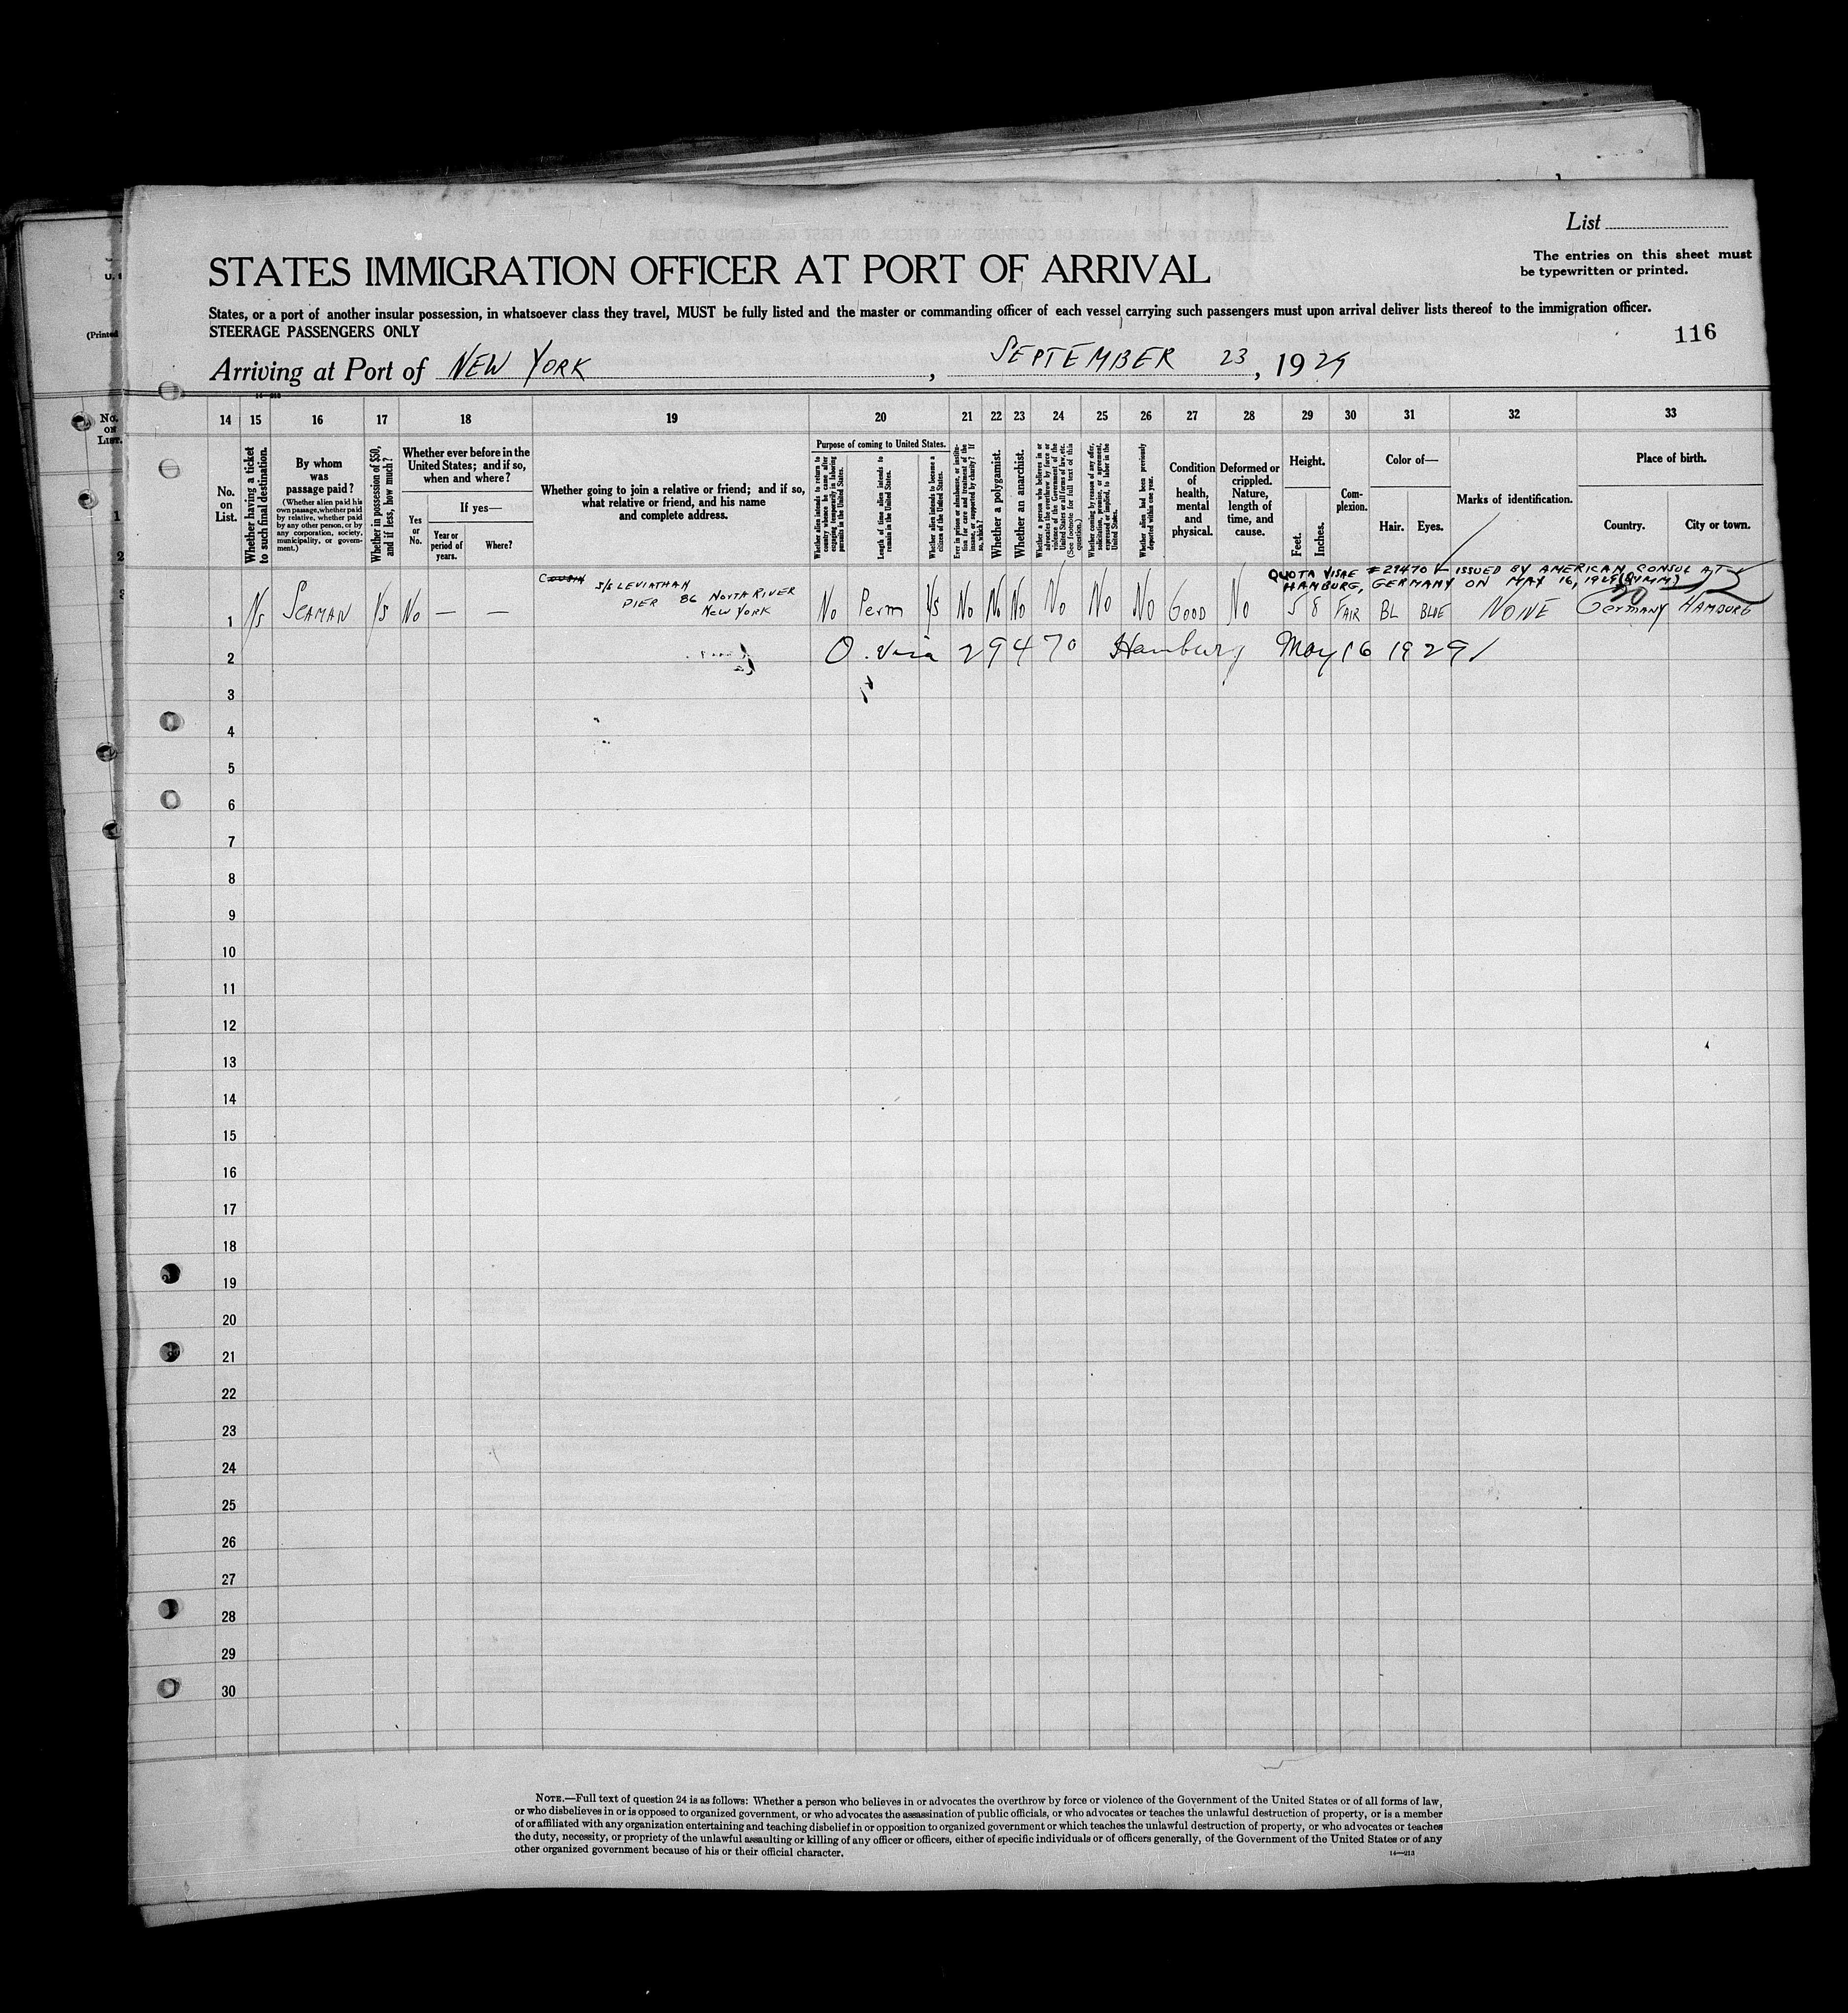 List
The entries on this sheet must
be typewritten or printed.
STATES IMMIGRATION OFFICER AT PORT OF ARRIVAL
States, or a port of another insular possession, in whatsoever class they travel, MUST be fully listed and the master or commanding officer of each vessel carrying such passengers must upon arrival deliver lists thereof to the immigration officer.
STEERAGE PASSENGERS ONLY
116
(Printed
Arriving at Port of NEW YORK , SEPTEMBER 23, 1929
14—213
No.
on
List.
14 15 16 17 18 19 20 21 22 23 24 25 26 27 28 29 30 31 32 33
No.
on
List.
Whether having a ticket
to such final destination.
By whom
was
passage paid?
(Whether alien paid his
own passage, whether paid
by relative, whether paid
by any other person, or by
any corporation, society,
municipality, or govern-
ment.)
Whether in possession of $50,
and if less, how much?
Whether ever before in the
United States; and if so,
when and where?
Yes
or
No.
If yes—
Year or
period of
years.
Where?
Whether going to join a relative or friend; and if so,
what relative or friend, and his name
and complete address.
Purpose of coming to United States.
Whether alien intends to return to
country whence he came after
engaging temporarily in laboring
pursuits in the United States.
Length of time alien intends to
remain in the United States.
Whether alien intends to become a
citizen of the United States.
Ever in prison or almshouse, or institu-
tion for care and treatment of the
insane, or supported by charity? If
so, which?
Whether a polygamist.
Whether an anarchist.
Whether a person who believes in or
advocates the overthrow by force or
violence of the Government of the
United States or all forms of law, etc.
(See footnote for full text of this
question.)
Whether coming by reason of any offer,
solicitation, promise, or agreement,
expressed or implied, to labor in the
United States.
Whether alien had been previously
deported within one year.
Condition
of
health,
mental
and
physical.
Deformed or
crippled.
Nature,
length of
time, and
cause.
Height.
Feet.
Inches.
Com-
plexion.
Color of—
Hair.
Eyes.
Marks of identification.
Place of birth.
Country.
City or town.
QUOTA VISAE #29470 ISSUED BY AMERICAN CONSUL AT
HAMBURG, GERMANY ON MAY 16, 1929
COUSIN S/S LEVIATHAN
PIER 86 NORTH RIVER
NEW YORK
1 Ys SEAMAN Ys No — — No Perm Ys No No No No No No GOOD No 5 8 FAIR BL BLUE NONE GERMANY HAMBURG
2 Q. Visa 29470 Hamburg May 16 1929
3
4
5
6
7
8
9
10
11
12
13
14
15
16
17
18
19
20
21
22
23
24
25
26
27
28
29
30
NOTE.—Full text of question 24 is as follows: Whether a person who believes in or advocates the overthrow by force or violence of the Government of the United States or of all forms of law,
or who disbelieves in or is opposed to organized government, or who advocates the assassination of public officials, or who advocates or teaches the unlawful destruction of property, or is a member
of or affiliated with any organization entertaining and teaching disbelief in or opposition to organized government or which teaches the unlawful destruction of property, or who advocates or teaches
the duty, necessity, or propriety of the unlawful assaulting or killing of any officer or officers, either of specific individuals or of officers generally, of the Government of the United States or of any
other organized government because of his or their official character.
14—213